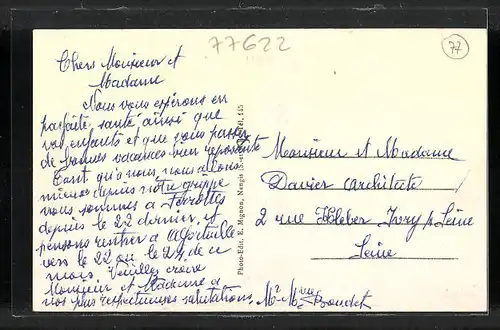 77622
77
Chers Monsieur et
Madame
Nous vous espérons en
parfaite santé ainsi que
vos enfants et que vous passez
de bonnes vacances bien reposante
Tant qu'à nous, nous allons
mieux depuis notre grippe
nous sommes à Ferrottes
depuis le 22 dernier, et
pensons rentrer à Alfortville
vers le 22 ou le 24 de ce
mois. Veuillez croire
Monsieur et Madame à
nos plus respectueuses salutations,
Mr Mme Boudet
Photo-Edit. E. Mignon, Nangis
Monsieur et Madame
Davier architecte
2 rue Kleber Ivry s/ Seine
Seine